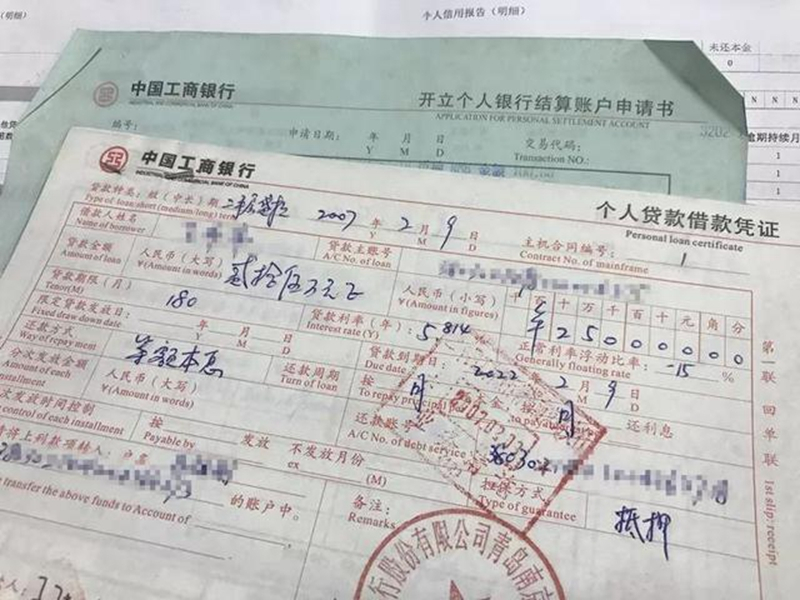 个人信用报告（明细）
未还本金
0
N N N
逾期持续月
1
1
1
中国工商银行
INDUSTRIAL AND COMMERCIAL BANK OF CHINA
开立个人银行结算账户申请书
APPLICATION FOR PERSONAL SETTLEMENT ACCOUNT
编号：
申请日期： 年 月 日
Y M D
交易代码：
Transaction NO.:
中国工商银行
INDUSTRIAL AND COMMERCIAL BANK OF CHINA
个人贷款借款凭证
Personal loan certificate
贷款种类：短（中长）期 2007 年 2 月 9 日
Type of loan:short (medium/long) term Y M D
主机合同编号：
Contract No. of mainframe
借款人姓名
Name of borrower
贷款主账号
A/C No. of loan
贷款金额
Amount of loan
人民币（大写）
¥(Amount in words)
贰拾伍万元正
人民币（小写）
¥(Amount in figures)
千 百 十 万 千 百 十 元 角 分
¥ 2 5 0 0 0 0 0 0
贷款期限（月）
Tenor(M)
180
贷款利率（年）：
Interest rate (Y)
5.814
正常利率浮动比率：
Generally floating rate
-15 %
限定贷款发放日：
Fixed draw down date
年 月 日
Y M D
贷款到期日：
Due date
2022 年 2 月 9 日
Y M D
还款方式
Way of repayment
等额本息
还款周期
Turn of loan
按 月
To repay principal
金，按 月 还利息
to payable
分次发放金额
Amount of each
installment
人民币（大写）
¥(Amount in words)
还款账号
A/C No. of debt service
次发放时间控制
control of each installment
按
Payable by
发放
不发放月份
ex (M)
担保方式
Type of guarantee
抵押
请将上列款项转入：户名
的账户中。
transfer the above funds to Account of
备注：
Remarks
第一联 回单联
1st slip: receipt
行股份有限公司青岛南